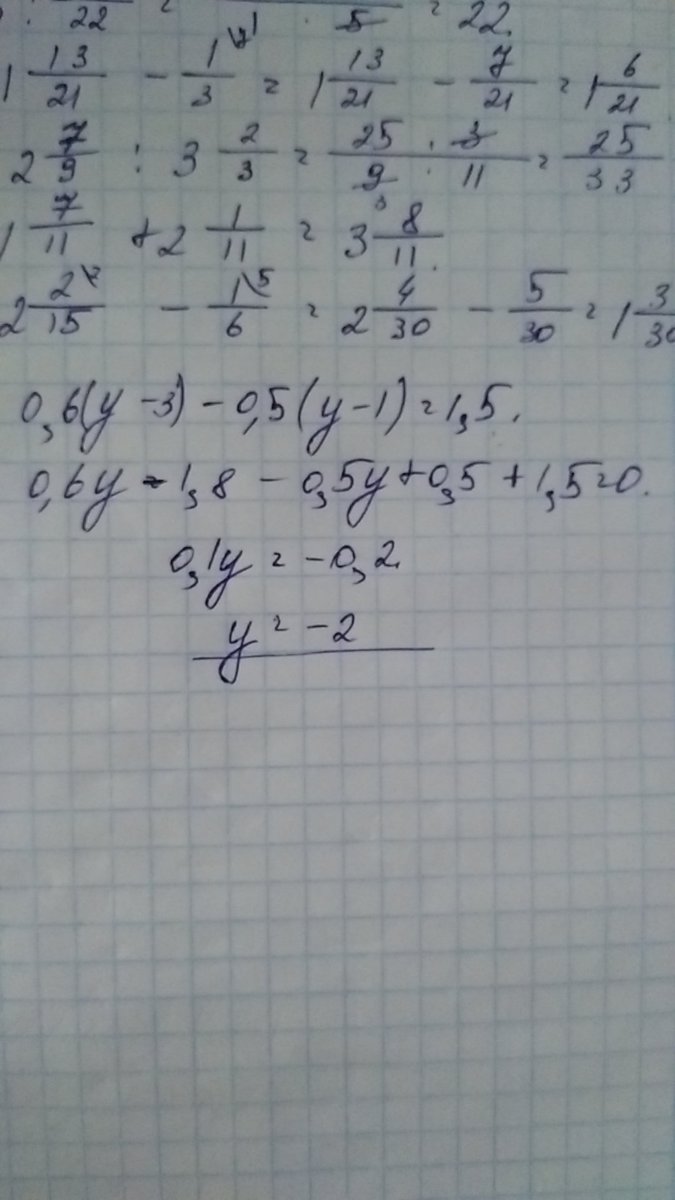 : /22 = /5 = 22.
1 13/21 - 1\7/3 = 1 13/21 - 7/21 = 1 6/21
2 7/9 : 3 2/3 = 25/9 · 3/11 = 25/33
1 7/11 + 2 1/11 = 3 8/11.
2 2\2/15 - 1\5/6 = 2 4/30 - 5/30 = 1 3/30
0,6(y - 3) - 0,5(y - 1) = 1,5.
0,6y - 1,8 - 0,5y + 0,5 + 1,5 = 0.
0,1y = -0,2.
y = -2